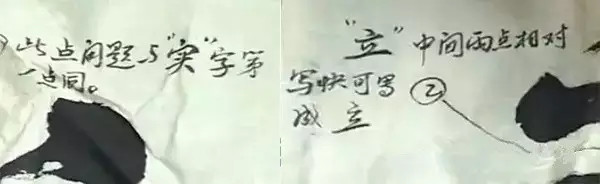 此点问题与"实"字第
一点同。
"立"中间两点相对
写快可写②
成立